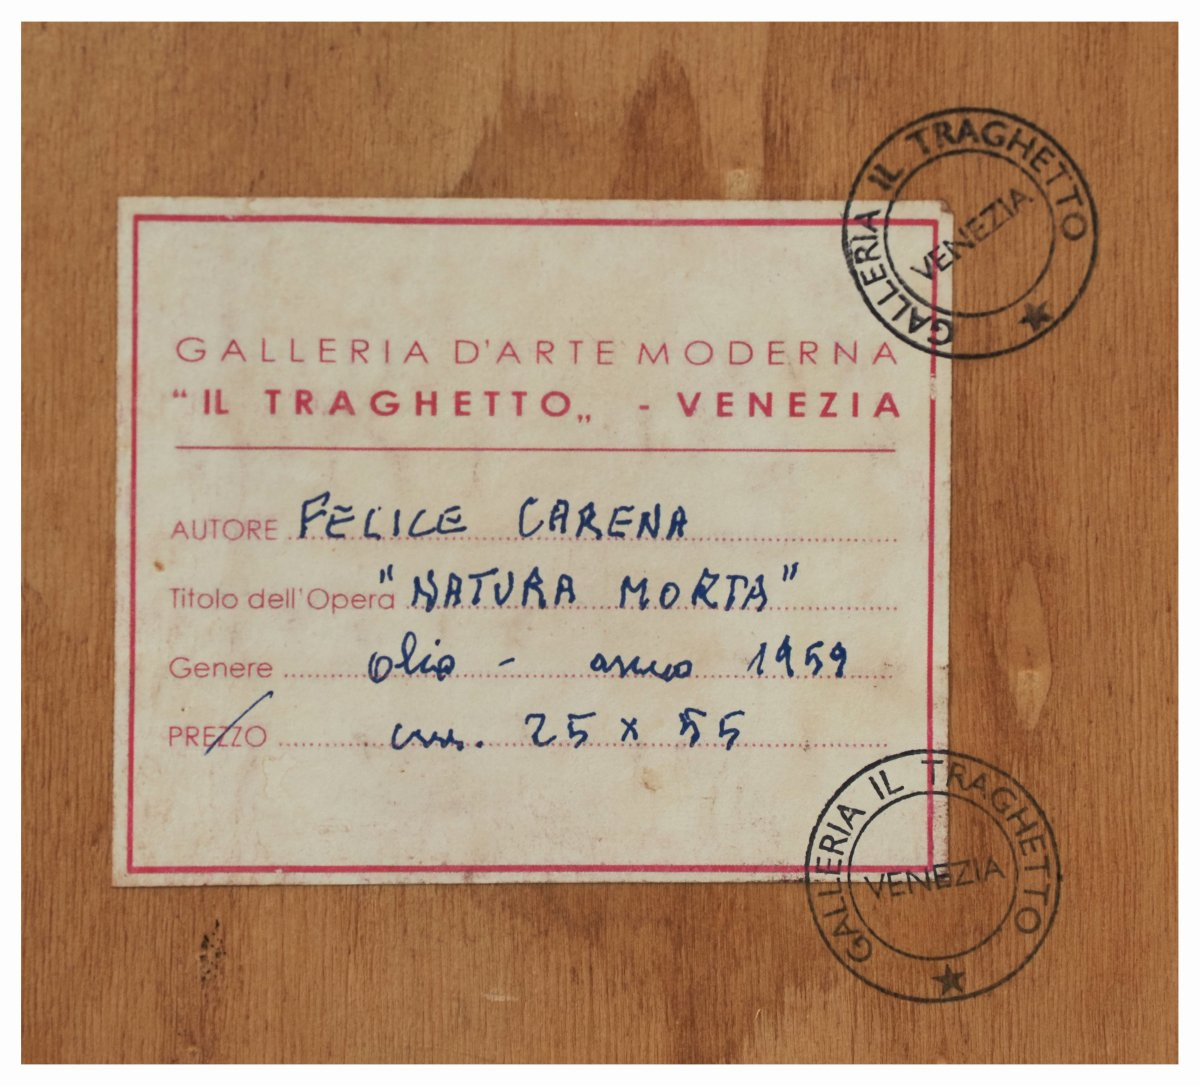 GALLERIA IL TRAGHETTO
VENEZIA
GALLERIA D'ARTE MODERNA
“IL TRAGHETTO„ - VENEZIA
AUTORE FELICE CARENA
Titolo dell'Opera "NATURA MORTA"
Genere olio - anno 1959
PREZZO cm. 25 x 55
GALLERIA IL TRAGHETTO
VENEZIA